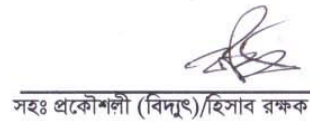 সহঃ প্রকৌশলী (বিদ্যুৎ)/হিসাব রক্ষক